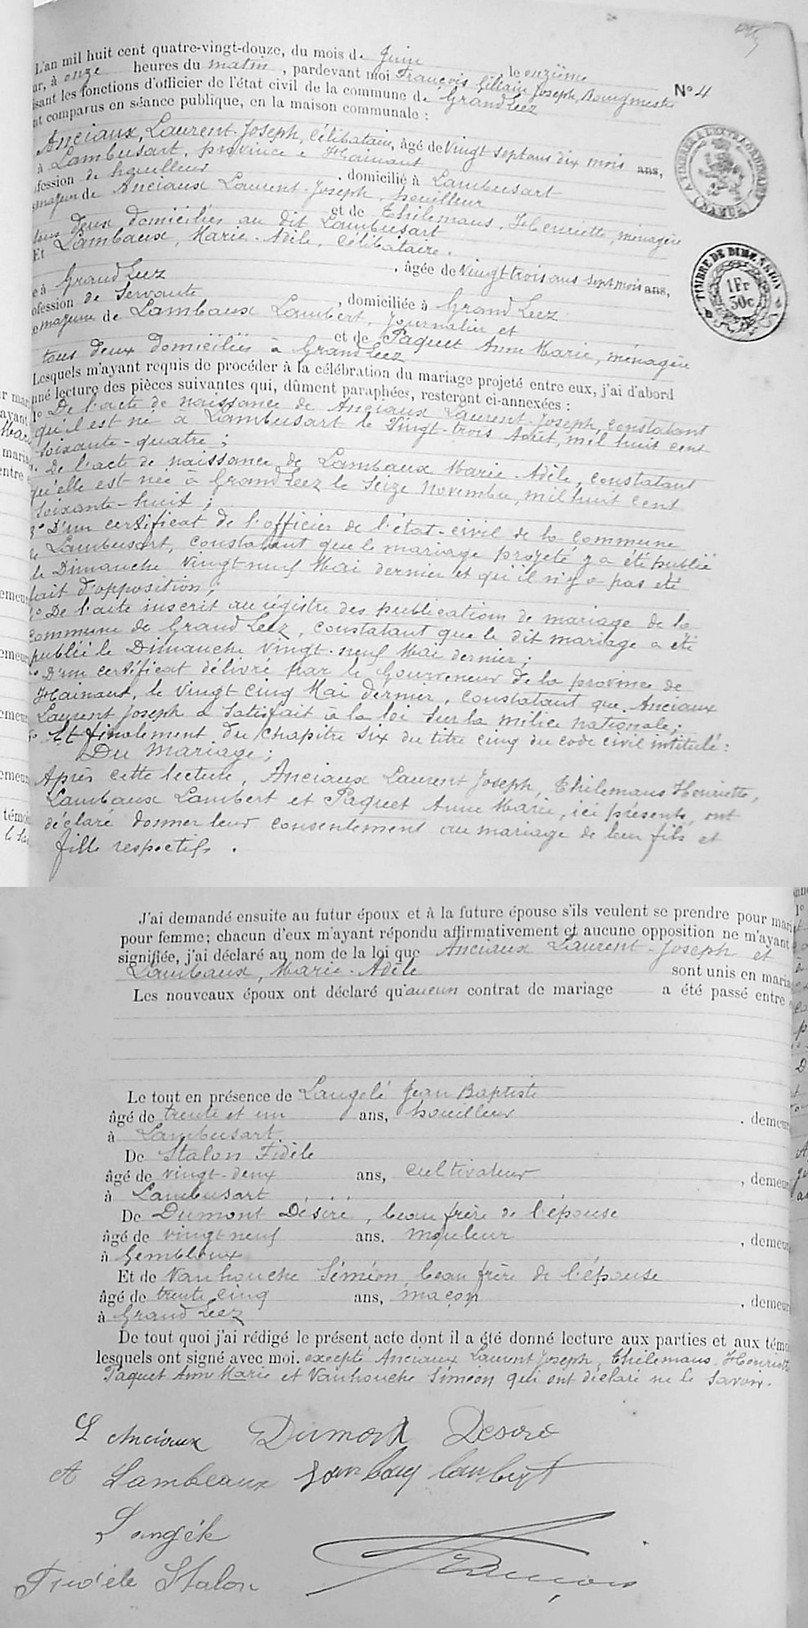 L'an mil huit cent quatre-vingt-douze, du mois de Juin le onzième
ur, à onze heures du matin, pardevant moi François Joseph, Bourgmestre
isant les fonctions d'officier de l'état civil de la commune de Grand Leez
nt comparus en séance publique, en la maison communale :
N° 4
Anciaux, Laurent-Joseph, célibataire, âgé de Vingt sept ans dix mois ans,
à Lambusart, province de Hainaut
ofession de houilleur, domicilié à Lambusart
s majeur de Anciaux Laurent-Joseph, houilleur
et de Thilemans, Henriette, ménagère
tous deux domiciliés au dit Lambusart
Et Lambaux, Marie-Adèle, célibataire.
, âgée de Vingt trois ans sept mois ans,
e à Grand Leez
ofession de Servante, domiciliée à Grand Leez
e majeure de Lambaux Lambert, Journalier et
et de Paquet Anne Marie, ménagère
tous deux domiciliés à Grand Leez
Lesquels m'ayant requis de procéder à la célébration du mariage projeté entre eux, j'ai d'abord
nné lecture des pièces suivantes qui, dûment paraphées, resteront ci-annexées :
1° De l'acte de naissance de Anciaux Laurent-Joseph, constatant
qu'il est né à Lambusart le Vingt-trois Août, mil huit cent
soixante-quatre ;
De l'acte de naissance de Lambaux Marie-Adèle, constatant
qu'elle est née à Grand Leez le Seize Novembre, mil huit cent
soixante-huit ;
3° D'un certificat de l'officier de l'état-civil de la commune
de Lambusart, constatant que le mariage projeté y a été publié
le Dimanche vingt-neuf Mai dernier et qu'il n'y a pas été
fait d'opposition ;
4° De l'acte inscrit au régistre des publications de mariage de la
commune de Grand Leez, constatant que le dit mariage a été
publié le Dimanche vingt-neuf Mai dernier ;
D'un certificat délivré par le Gouverneur de la province de
Hainaut, le vingt cinq Mai dernier, constatant que Anciaux
Laurent Joseph a satisfait à la loi sur la milice nationale ;
Et finalement du chapitre six du titre cinq du code civil intitulé :
Du Mariage ;
Après cette lecture, Anciaux Laurent Joseph, Thilemans Henriette,
Lambaux Lambert et Paquet Anne Marie, ici présents, ont
déclaré donner leur consentement au mariage de leur fils et
fille respectifs.
A TIMBRER A L'EXTRAORDINAIRE
(NAMUR)
TIMBRE DE DIMENSION
1Fr
50c
J'ai demandé ensuite au futur époux et à la future épouse s'ils veulent se prendre pour mari
pour femme; chacun d'eux m'ayant répondu affirmativement et aucune opposition ne m'ayant
signifiée, j'ai déclaré au nom de la loi que Anciaux Laurent-Joseph et
Lambaux, Marie-Adèle sont unis en maria
Les nouveaux époux ont déclaré qu'aucun contrat de mariage a été passé entre
Le tout en présence de Langelé Jean Baptiste
âgé de trente et un ans, houilleur, demeu
à Lambusart.
De Stalon Fidèle
âgé de vingt-deux ans, cultivateur, demeu
à Lambusart
De Dumont Désiré, beau frère de l'épouse
âgé de vingt neuf ans, mouleur, demeu
à Gembloux
Et de Vanhouche Siméon, beau frère de l'épouse
âgé de trente cinq ans, maçon, demeu
à Grand Leez
De tout quoi j'ai rédigé le présent acte dont il a été donné lecture aux parties et aux témo
lesquels ont signé avec moi. excepté Anciaux Laurent Joseph, Thilemans Henriette
Paquet Anne Marie et Vanhouche Siméon qui ont déclaré ne le savoir.
L Anciaux Dumont Desiré
A Lambeaux
Langelé
Fidèle Stalon François